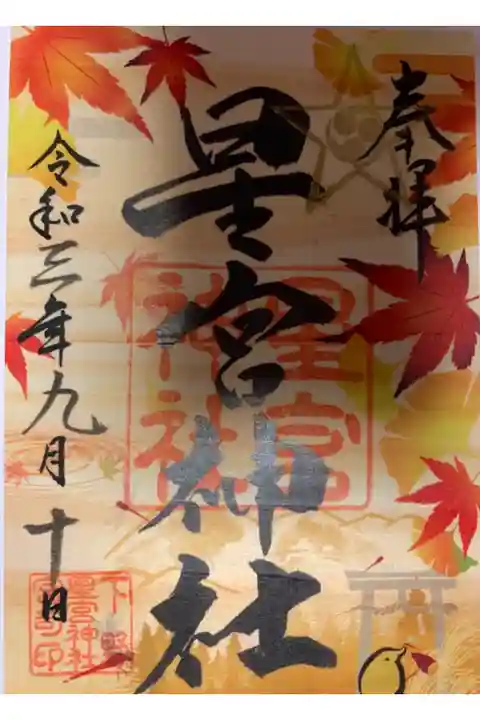 奉拝
星宮神社
星宮
神社
令和三年九月十日
下野
星宮神社
宮司印